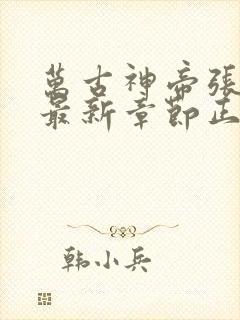 萬古神帝張
最新章節正
韩小兵